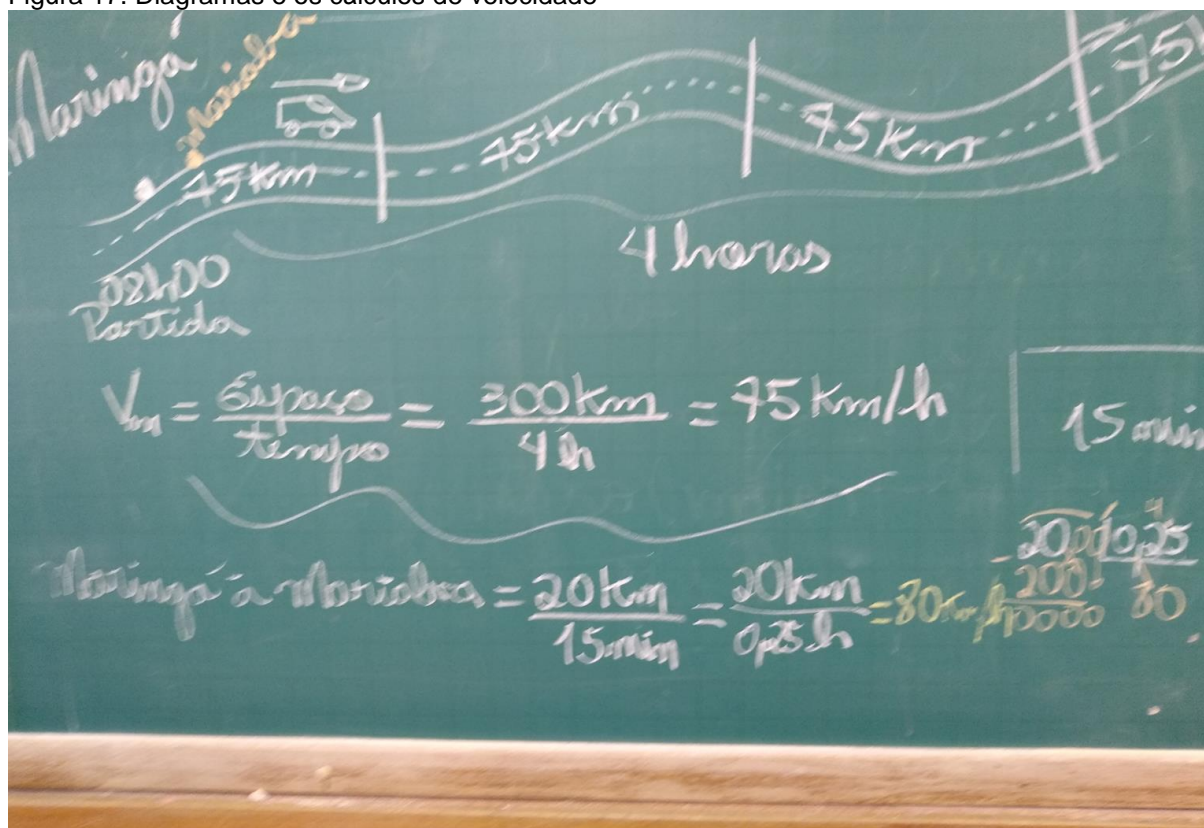 Figura 17: Diagramas e os cálculos de velocidade
Maringá
Marialva
75 km
75 km
75 km
75
08h00
Partida
4 horas
Vm = Espaço / tempo = 300 km / 4 h = 75 km/h
15 min
Maringá à Marialva = 20 km / 15 min = 20 km / 0,25 h = 80 km/h
20,00 0,25
200 80
0000